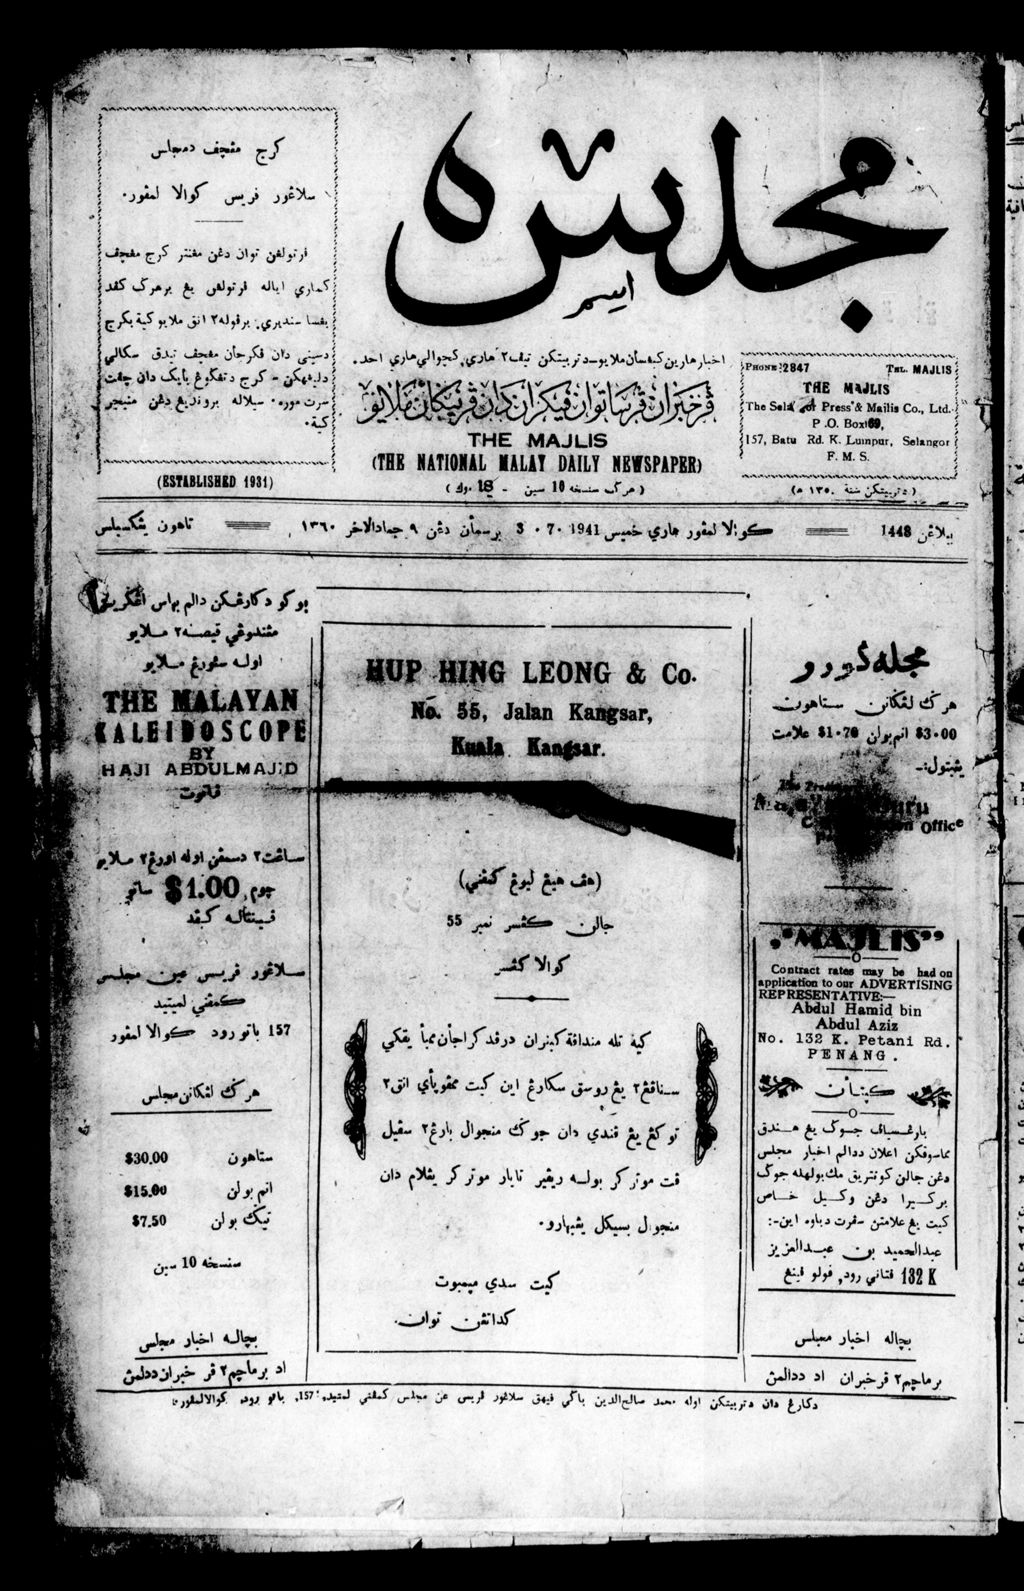 مجلس
كرج مڠچڤ دمجلس
سلاڠور ڤريس كوالا لمڤور.
ڤرتولڠن توان دڠن مڠنتر كرج مڠچڤ
كماري اياله ڤرتولڠن يڠ برهرݢ كڤد
بڠسا سنديري. برڤوله٢ انق ملايو كيت بكرج
دسيني دان ڤكرجأن مڠچڤ تيدق سكالي
دليڤهكن - كرج دتڠݢوڠ بايك دان چڤت
سرت موره. سيلاله بروندڠ دڠن منيجر
كيت.
(ESTABLISHED 1931)
اخبار هارين كبڠسأن ملايو - دتربيتكن تيڤ٢ هاري كچوالي هاري احد.
ڤرخبران ڤرساتوان ڤيكيران دان ڤريڠكاتن ملايو
THE MAJLIS
(THE NATIONAL MALAY DAILY NEWSPAPER)
(هرݢ سنسخه 10 سين - 18 موك)
PHONE: 2847 TEL. MAJLIS
THE MAJLIS
The Selangor Press & Majlis Co., Ltd.
P.O. Box 69,
157, Batu Rd. K. Lumpur, Selangor
F. M. S.
(دتربيتكن سنة ١٣٥٠ ه)
بيلاڠن 1448
كوالا لمڤور هاري خميس 3 - 7 - 1941 برسمأن دڠن ٩ جمادالاخر ١٣٦٠
تاهون يڠكسبلس
بوكو دكارڠكن دالم بهاس اڠݢريس
مڠندوڠي قيصه٢ ملايو
اوله سئورڠ ملايو
THE MALAYAN
KALEIDOSCOPE
BY
HAJI ABDULMAJID
ڤاتوت
ساڠت٢ دسمڤن اوله اورڠ٢ ملايو
چوم $1.00 ساتو
ڤينتاله كڤد
سلاڠور ڤريس عين مجلس
كمڤني لميتيد
157 باتو رود كوالا لمڤور
هرݢ لڠݢانن مجلس
ستاهون $30.00
انم بولن $15.00
تيݢ بولن $7.50
سنسخه 10 سين
بچاله اخبار مجلس
اد برماچم٢ ڤرخبران ددلمڽ
HUP HING LEONG & Co.
No. 55, Jalan Kangsar,
Kuala Kangsar.
(هڤ هيڠ ليوڠ كمڤني)
جالن كڠسر نمبر 55
كوالا كڠسر
كيت تله منداڤة كبنران درڤد كراجأن ممبأيقكي
سناڤڠ٢ يڠ روسق سكارڠ اين كيت ممڤوڽأي انق٢
توكڠ يڠ ڤندي دان جوݢ منجوال بارڠ٢ سڤيل
ڤت موتر كر بوله ريڤير تاير موتر كر يڠلام دان
منجوال بسيكل يڠبهارو.
كيت سدي ميمبوت
كداتڠن توان.
مجله ݢورو
هرݢ لڠݢانن ستاهون
$3.00 انم بولن $1.70 علامت
يڠبتول:-
"MAJLIS"
Contract rates may be had on
application to our ADVERTISING
REPRESENTATIVE:—
Abdul Hamid bin
Abdul Aziz
No. 132 K. Petani Rd.
PENANG.
كڽتأن
بارڠسياڤ جوݢ يڠ هندق
ماسوقكن اعلان ددالم اخبار مجلس
دڠن جالن كونتريق مك بولهله جوݢ
بركيرا دڠن وكيل خاص
كيت يڠ علامتڽ سڤرت دباوه اين:-
عبدالحميد بن عبدالعزيز
132 K ڤتاني رود, ڤولو ڤينڠ
بچاله اخبار مجلس
برماچم٢ ڤرخبران اد ددالمڽ
دكارڠ دان دتربيتكن اوله محمد صالح الدين باݢي ڤيهق سلاڠور ڤريس عن مجلس كمڤني لمتيد. 157, باتو رود, كوالالمڤور.